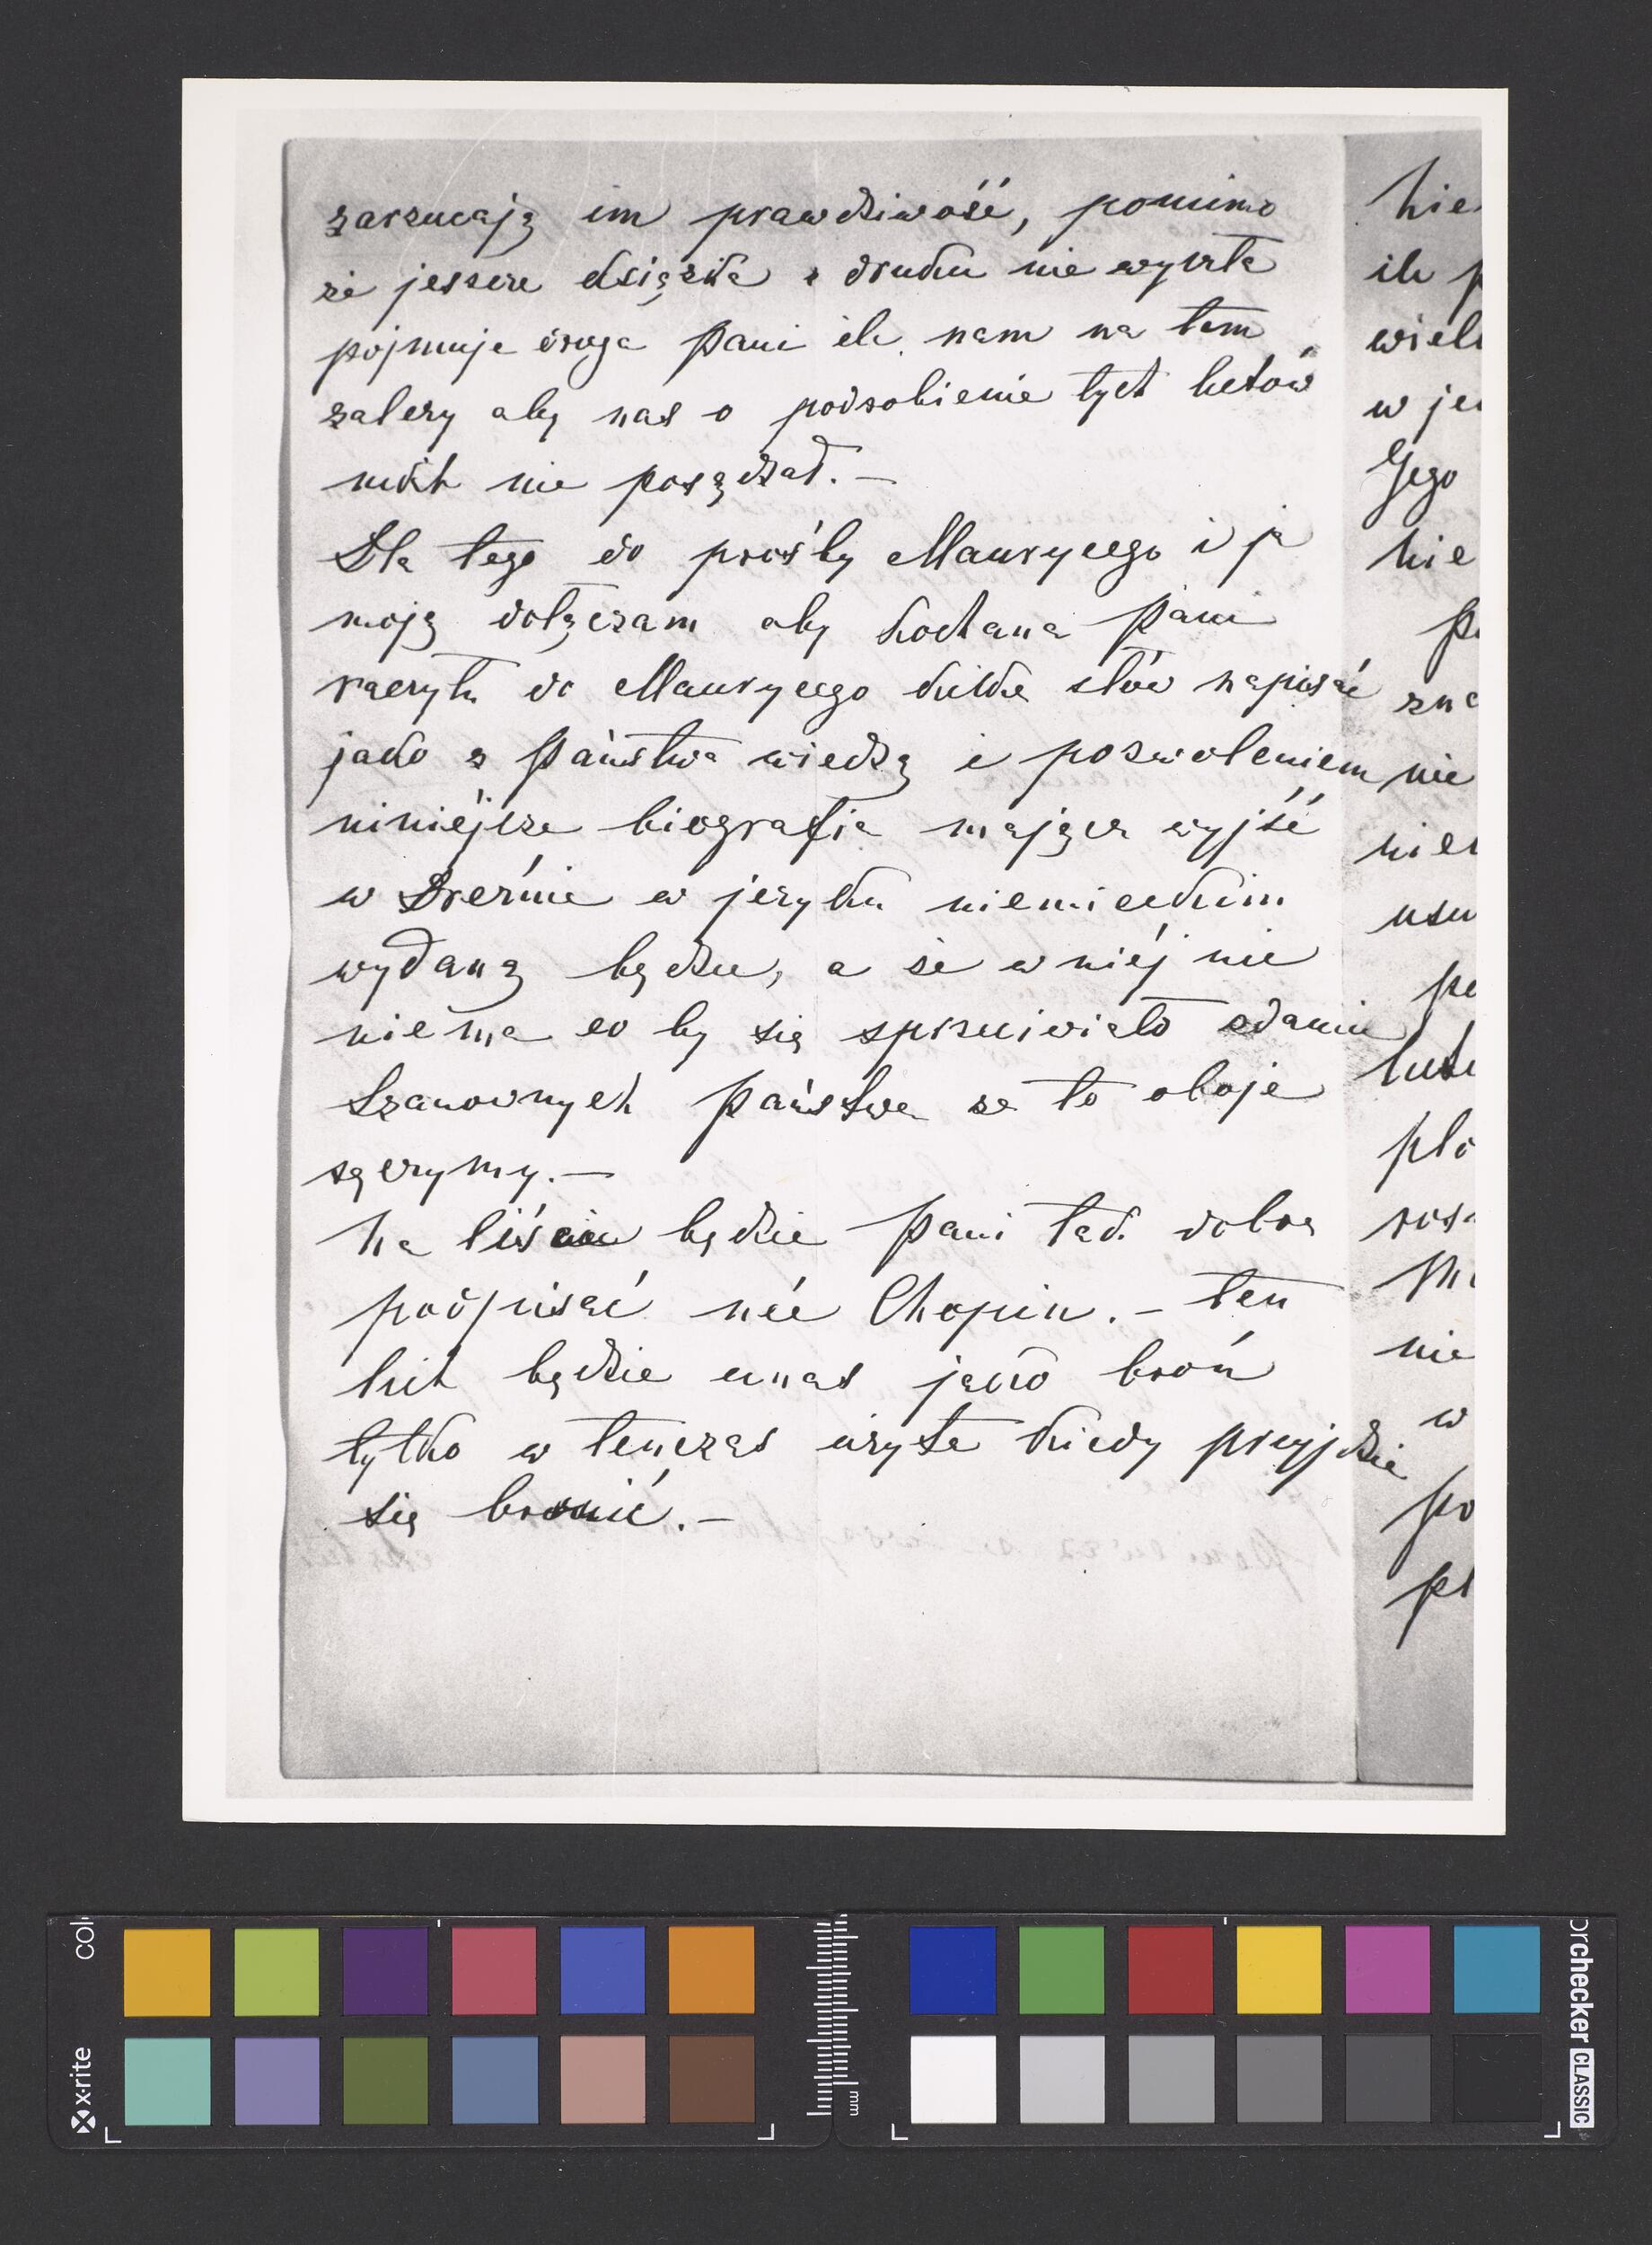 zarzucają im prawdziwość, pomimo
że jeszcze książka z druku nie wyszła
pojmuje droga Pani ile nam na tem
zależy aby nas o podrobienie tych listów
nikt nie posądzał. –
Dla tego do prośby Maurycego i ja
moją dołączam aby kochana Pani
raczyła do Maurycego kilka słów napisać
jako z Państwa wiedzą i pozwoleniem
niniéjsza biografia mająca wyjść
w Dreźnie w języku niemieckim
wydaną będzie, a że w niéj nic
niema co by się sprzeciwiało zdaniu
Szanownych Państwa za to oboje
ręczymy. –
Na liście będzie Pani tak dobra
podpisać née Chopin. – ten
list będzie u nas jako broń
tylko w tenczas użyta kiedy przyjdzie
się bronić. –
nie
w
x-rite
mm
checker CLASSIC